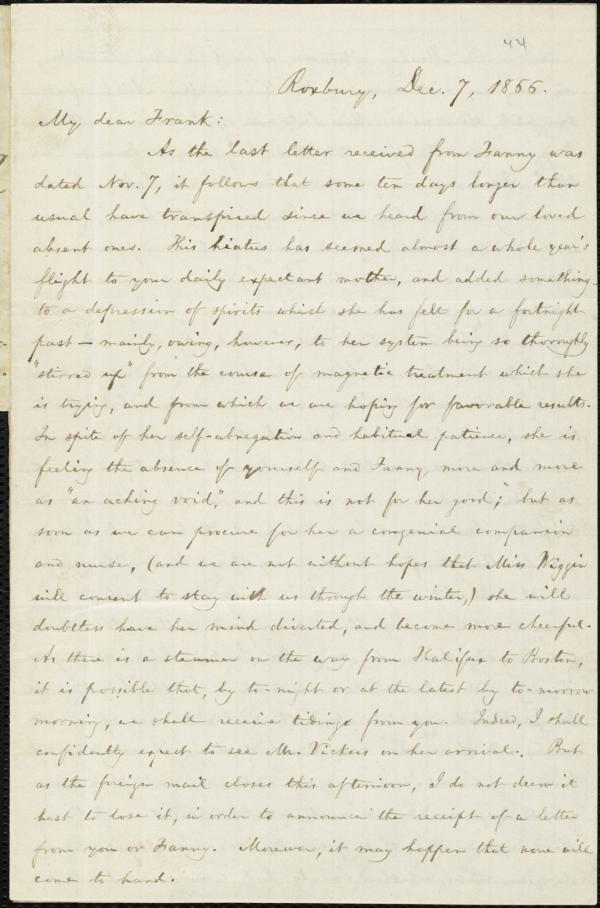 44
Roxbury, Dec. 7, 1866.
My dear Frank:
As the last letter received from Fanny was
dated Nov. 7, it follows that some ten days longer than
usual have transpired since we heard from our loved
absent ones. This hiatus has seemed almost a whole year's
flight to your daily expectant mother, and added something
to a depression of spirits which she has felt for a fortnight
past — mainly, owing, however, to her system being so thoroughly
"stirred up" from the course of magnetic treatment which she
is trying, and from which we are hoping for favorable results.
In spite of her self-abnegation and habitual patience, she is
feeling the absence of yourself and Fanny more and more
as "an aching void," and this is not for her good; but as
soon as we can procure for her a congenial companion
and nurse, (and we are not without hopes that Miss Wiggin
will consent to stay with us through the winter,) she will
doubtless have her mind diverted, and become more cheerful.
As there is a steamer on the way from Halifax to Boston,
it is possible that, by to-night or at the latest by to-morrow
morning, we shall receive tidings from you. Indeed, I shall
confidently expect to see Mr. Vickers on her arrival. But
as the foreign mail closes this afternoon, I do not deem it
best to lose it, in order to announce the receipt of a letter
from you or Fanny. Moreover, it may happen that none will
come to hand.